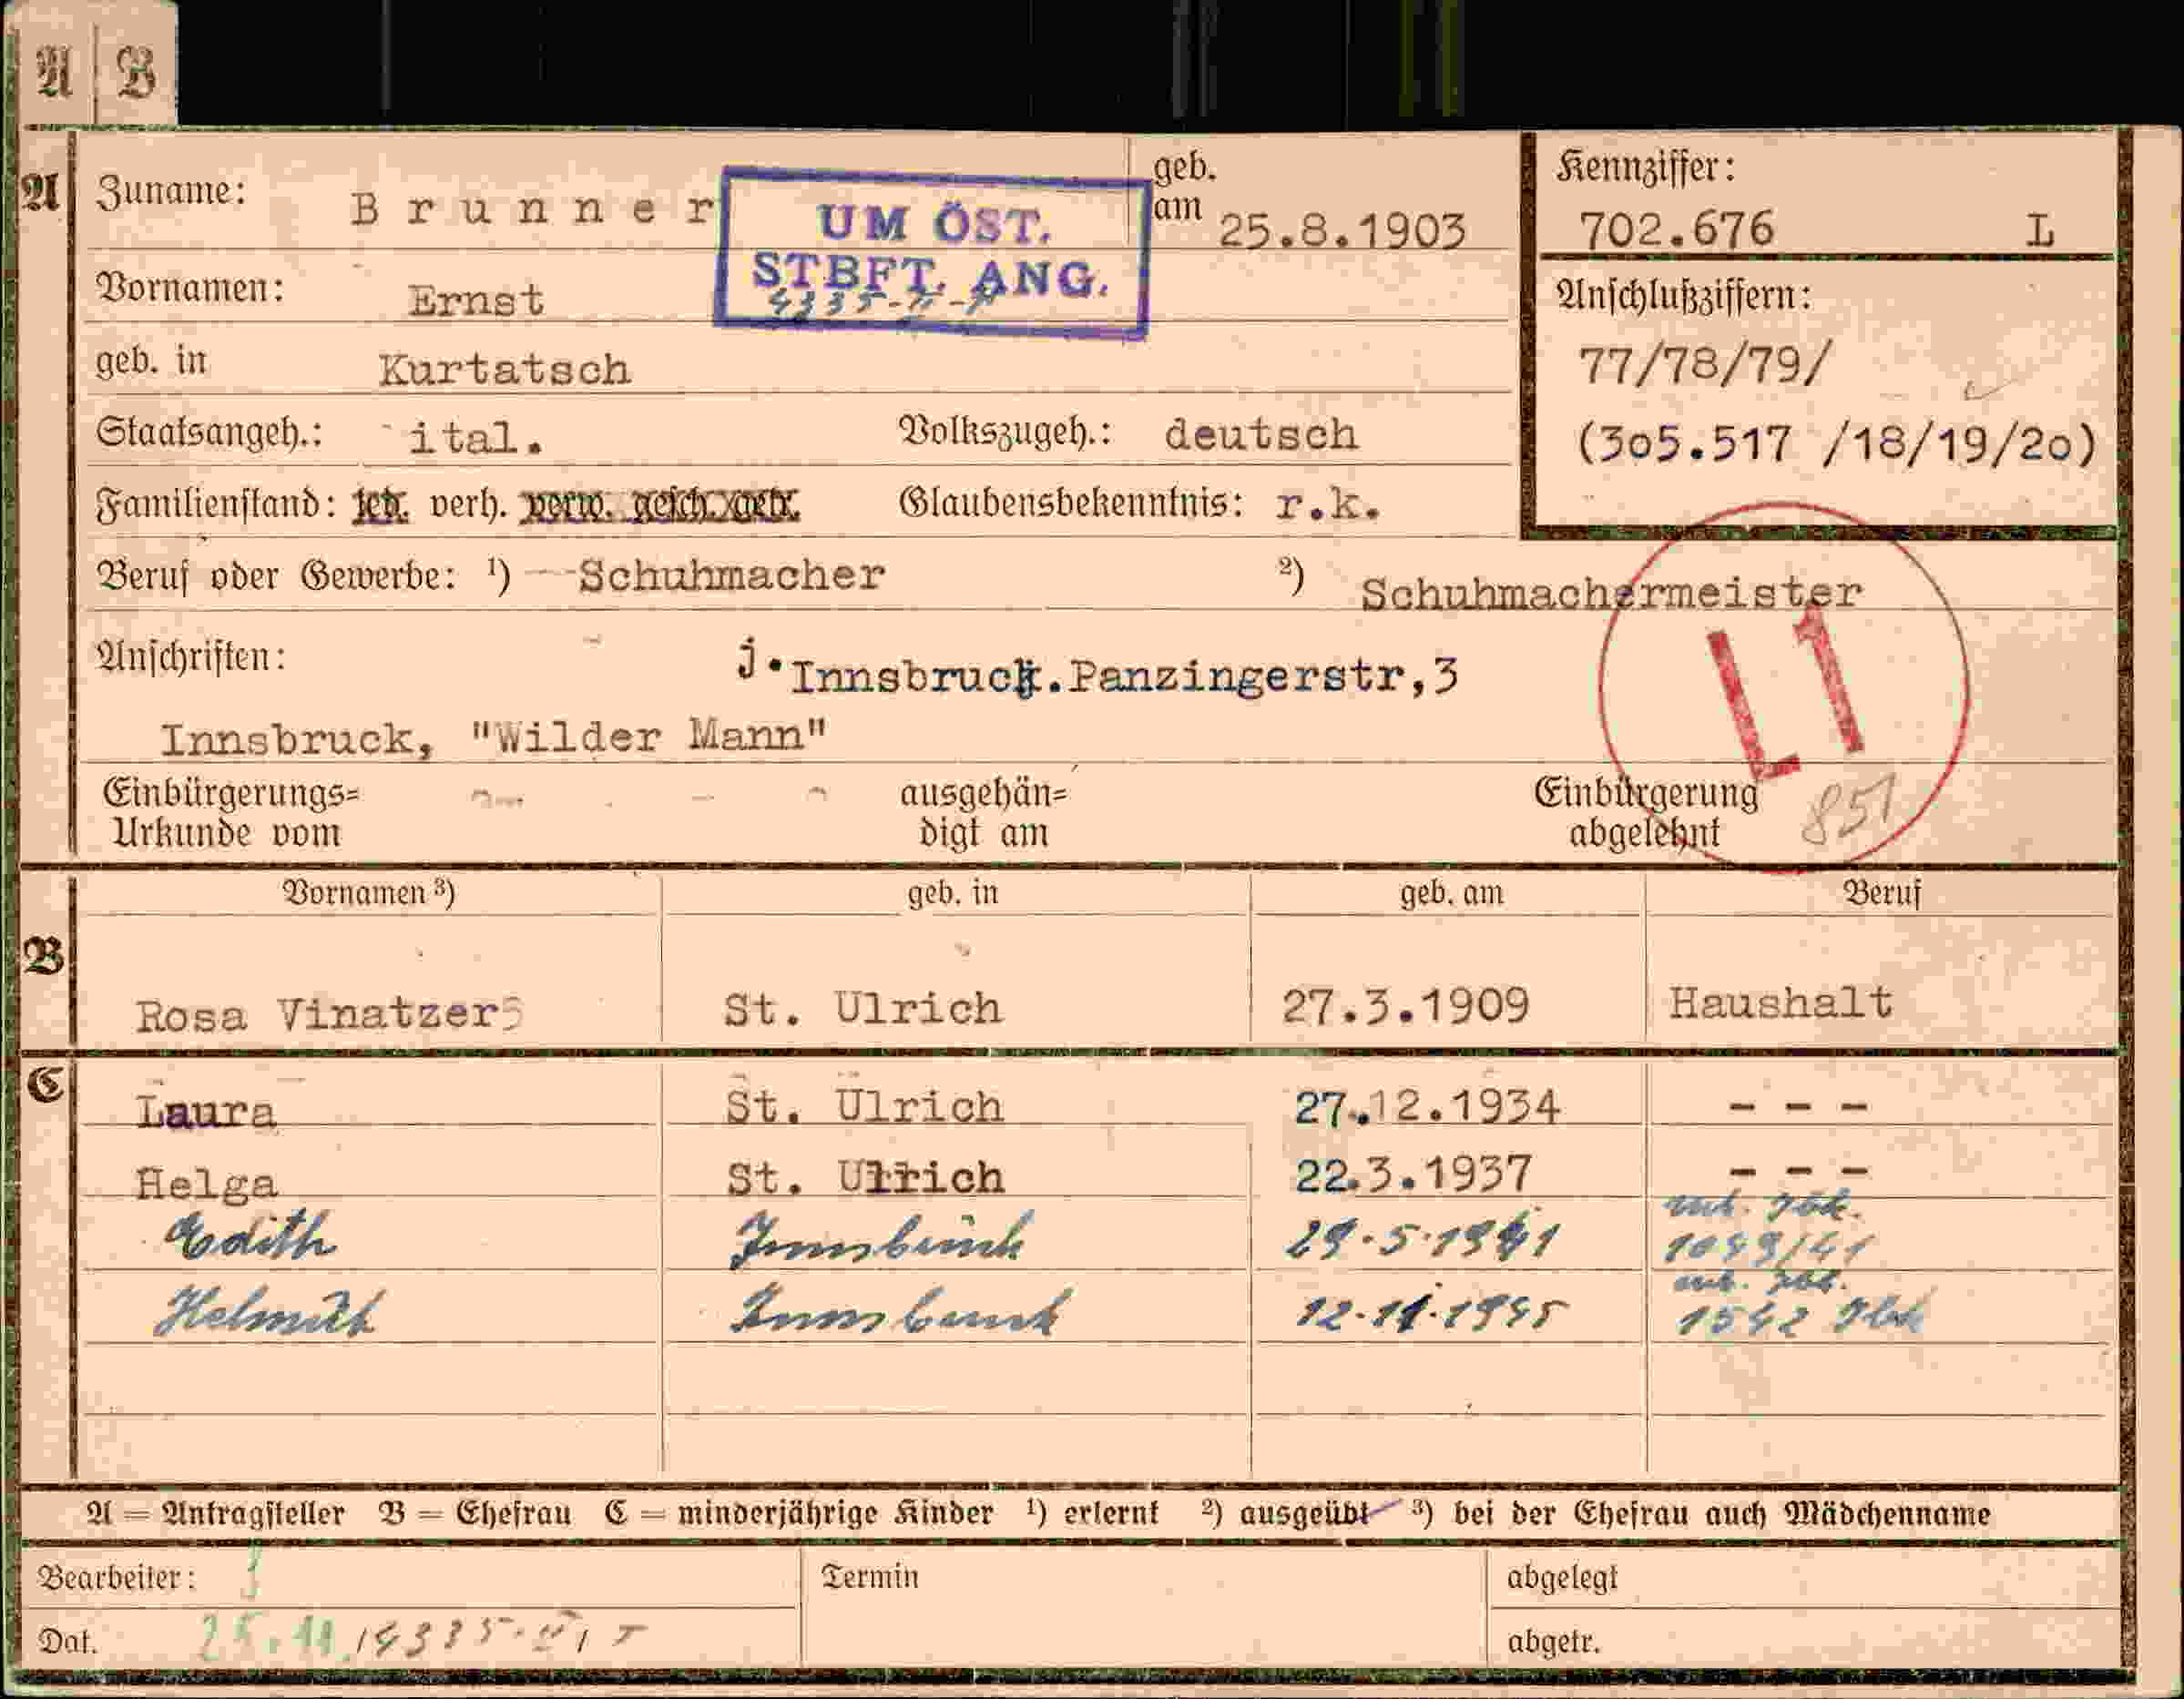 A B
A Zuname: Brunner
UM ÖST.
STBFT. ANG.
geb. am 25.8.1903
Kennziffer:
702.676 L
Vornamen: Ernst
Anschlußziffern:
77/78/79/
(305.517 /18/19/20)
geb. in Kurtatsch
Staatsangeh.: ital. Volkszugeh.: deutsch
Familienstand: led. verh. verw. gesch. getr. Glaubensbekenntnis: r.k.
Beruf oder Gewerbe: ¹) Schuhmacher ²) Schuhmachermeister
Anschriften: j. Innsbruck.Panzingerstr,3
Innsbruck, "Wilder Mann"
L1
Einbürgerungs=
Urkunde vom
ausgehän=
digt am
Einbürgerung
abgelehnt
851
Vornamen ³) geb. in geb. am Beruf
B Rosa Vinatzer St. Ulrich 27.3.1909 Haushalt
C Laura St. Ulrich 27.12.1934 - - -
Helga St. Ulrich 22.3.1937 - - -
Edith Innsbruck 29.5.1941 1099/41
Helmut Innsbruck 12.11.1945 1542 Ibk
A = Antragsteller B = Ehefrau C = minderjährige Kinder ¹) erlernt ²) ausgeübt ³) bei der Ehefrau auch Mädchenname
Bearbeiter: Termin abgelegt
Dat. 25.11. abgetr.